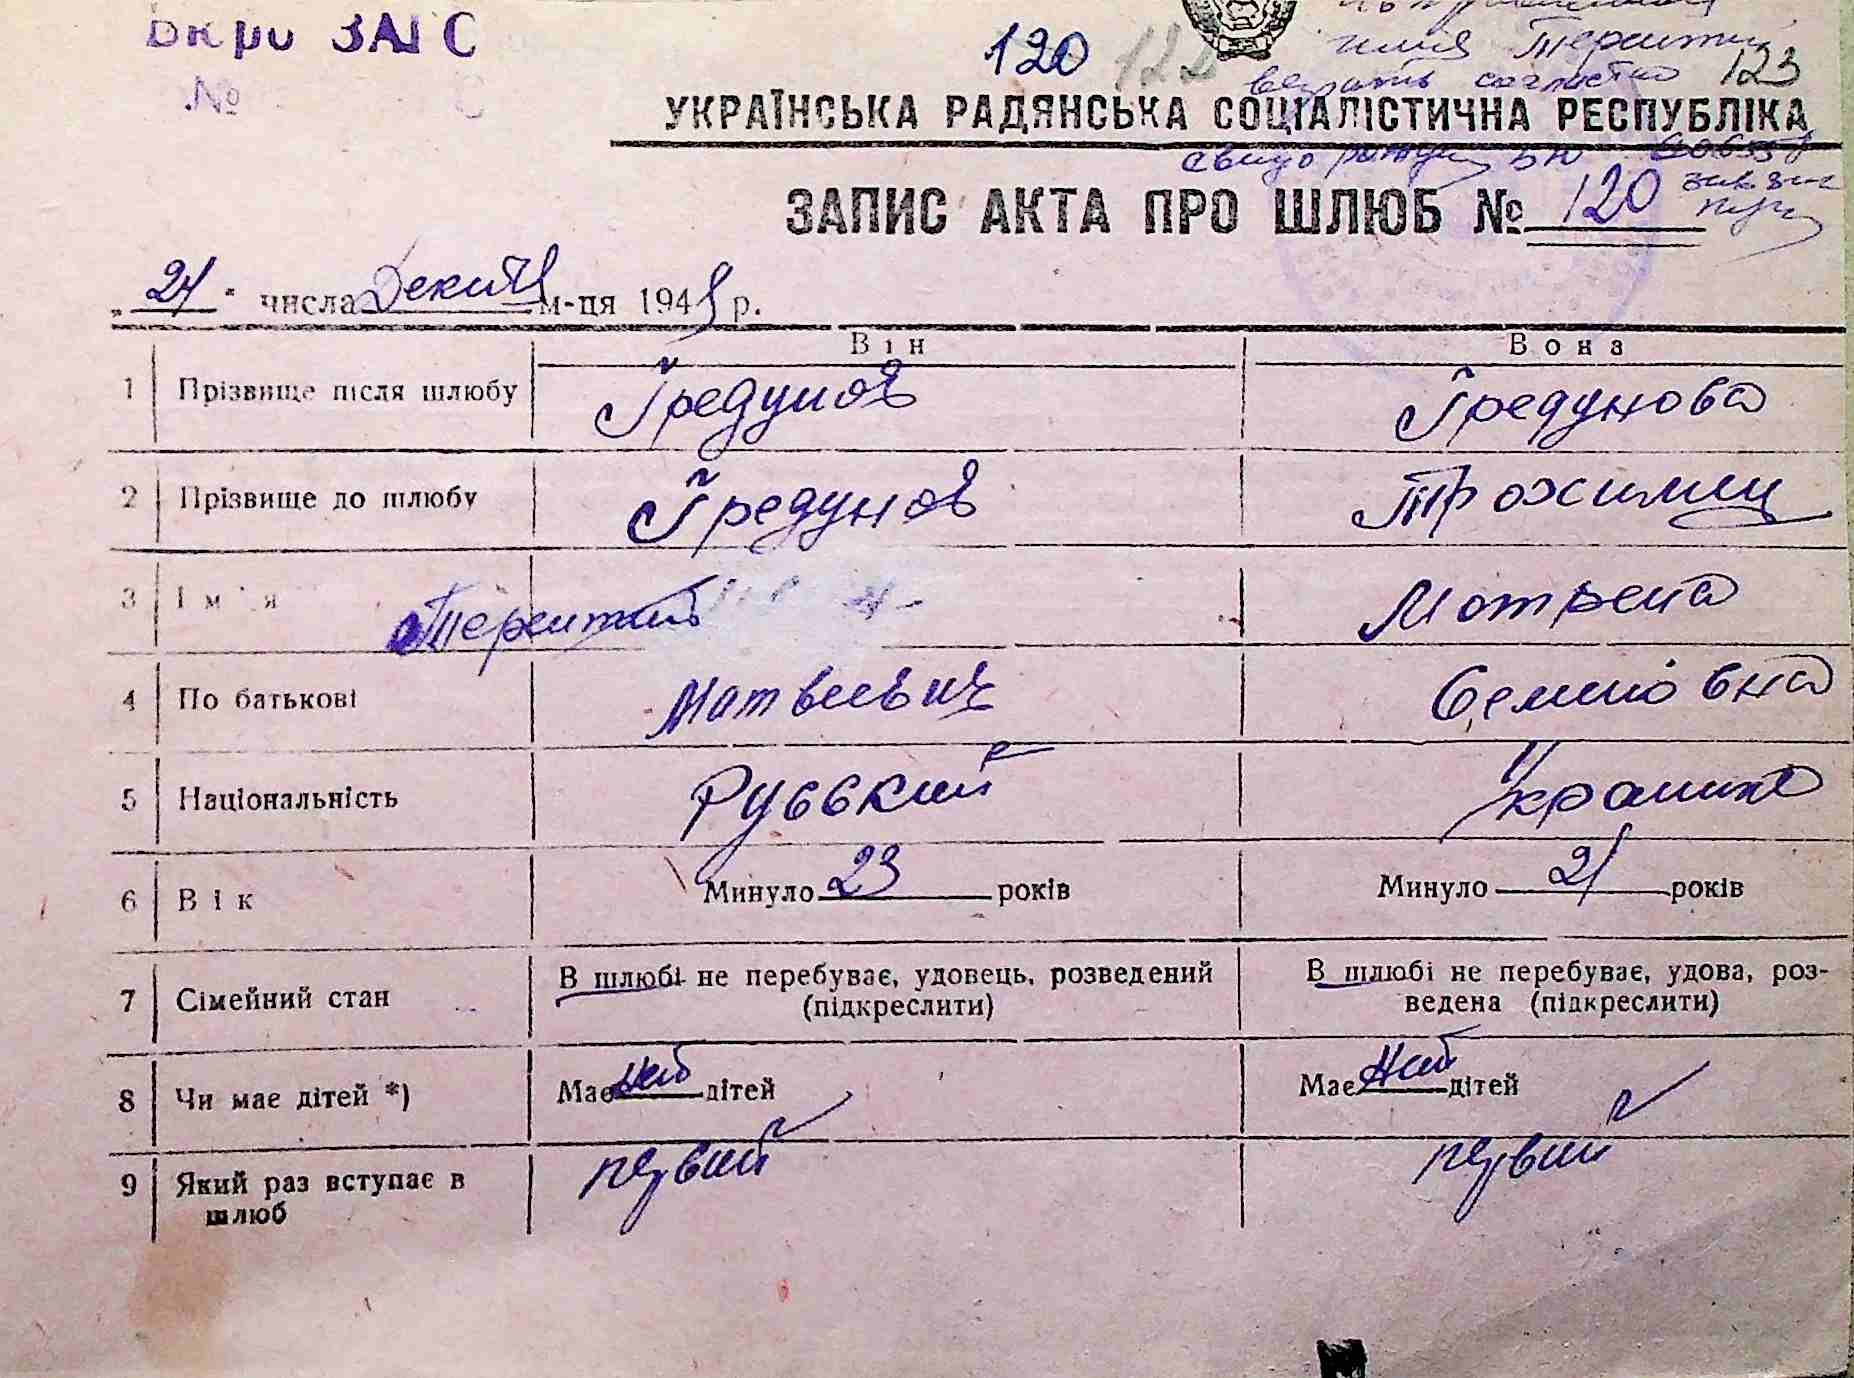 Бюро ЗАГС
№
120 122 123
имя Терентий
верить согласно
УКРАЇНСЬКА РАДЯНСЬКА СОЦІАЛІСТИЧНА РЕСПУБЛІКА
ЗАПИС АКТА ПРО ШЛЮБ № 120
числа м-ця 194 р.
Він Вона
1 Прізвище після шлюбу Гредунов Гредунова
2 Прізвище до шлюбу Гредунов Трохимец
3 Ім'я Терентий Мотрена
4 По батькові Матвеевич Семеновна
5 Національність Русский Украинка
6 Вік Минуло 23 років Минуло 21 років
7 Сімейний стан В шлюбі не перебуває, удовець, розведений (підкреслити) В шлюбі не перебуває, удова, роз-
ведена (підкреслити)
8 Чи має дітей *) Має нет дітей Має нет дітей
9 Який раз вступає в шлюб первий первий